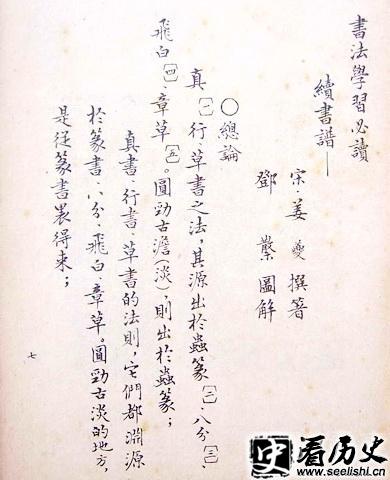 書法學習必讀
續書譜——
宋·姜夔撰著
鄧 𢿢圖解
○總論
真〔一〕、行、草書之法，其源出於蟲篆〔二〕、八分〔三〕、
飛白〔四〕、章草〔五〕。圓勁古澹（淡），則出於蟲篆；
真書、行書、草書的法則，它們都淵源
於篆書、八分、飛白、章草。圓勁古淡的地方，
是從篆書裏得來；
七
史看历史
www.seelishi.cn